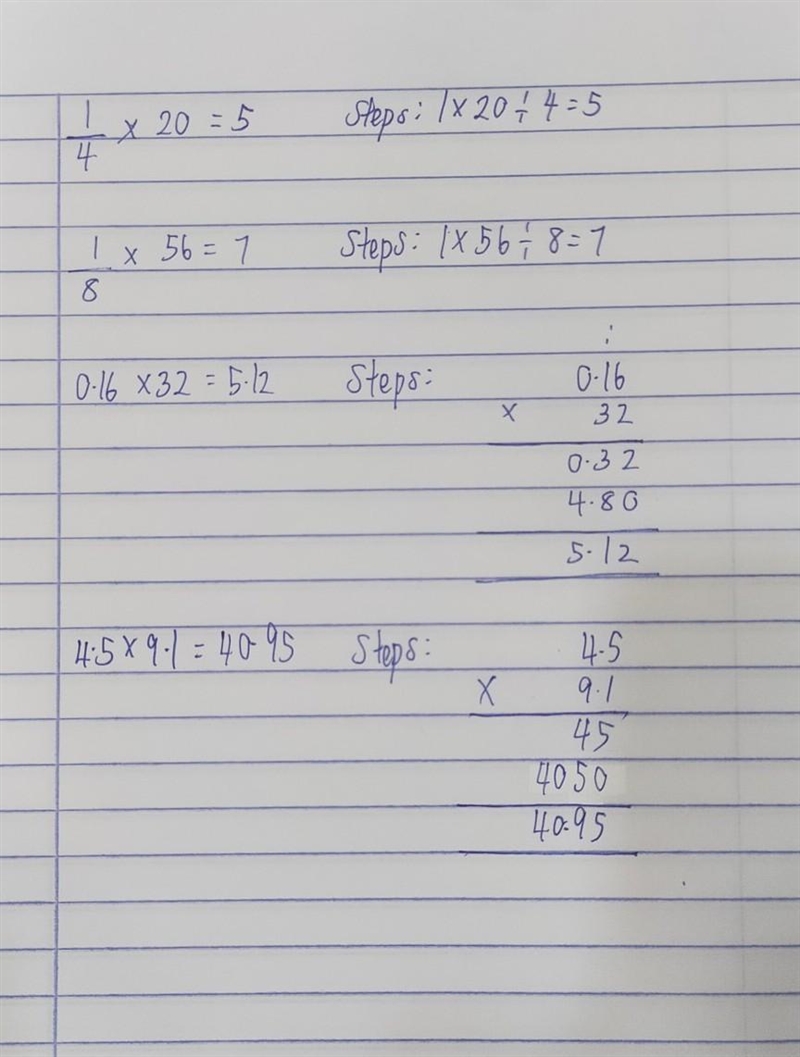 1/4 × 20 = 5 Steps: 1 × 20 ÷ 4 = 5
1/8 × 56 = 7 Steps: 1 × 56 ÷ 8 = 7
0.16 × 32 = 5.12 Steps: 0.16
× 32
0.32
4.80
5.12
4.5 × 9.1 = 40.95 Steps: 4.5
× 9.1
45
4050
40.95